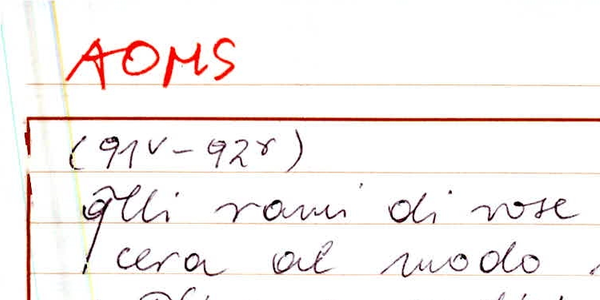 AOMS
(91v-92r)
qlli rami di rose
cera al modo